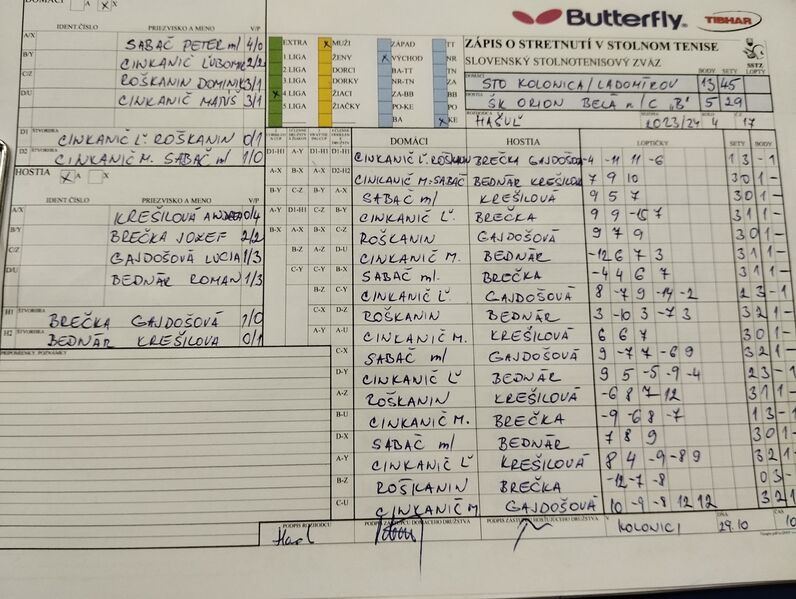 DOMÁCI A X X
Butterfly. TIBHAR
IDENT.ČÍSLO PRIEZVISKO A MENO V/P
A/X SABAČ PETER ml 4/0
B/Y CINKANIČ ĽUBOMÍR 2/2
C/Z ROŠKANIN DOMINIK 3/1
D/U CINKANIČ MATÚŠ 3/1
D1 ŠTVORHRA CINKANIČ Ľ. ROŠKANIN 0/1
D2 ŠTVORHRA CINKANIČ M. SABAČ ml 1/0
HOSTIA A X X
IDENT ČÍSLO PRIEZVISKO A MENO V/P
A/X KREŠILOVÁ ANDREA 0/4
B/Y BREČKA JOZEF 2/2
C/Z GAJDOŠOVÁ LUCIA 1/3
D/U BEDNÁR ROMAN 1/3
H1 ŠTVORHRA BREČKA GAJDOŠOVÁ 1/0
H2 ŠTVORHRA BEDNÁR KREŠILOVA 0/1
PRIPOMIENKY POZNÁMKY
EXTRA X MUŽI ZÁPAD TT
1 LIGA ŽENY X VÝCHOD NR
2 LIGA DORCI BA-TT TN
3 LIGA DORKY NR-TN ZA
X 4 LIGA ŽIACI ZA-BB BB
5 LIGA ŽIAČKY PO-KE PO
BA X KE
ZÁPIS O STRETNUTÍ V STOLNOM TENISE
SLOVENSKÝ STOLNOTENISOVÝ ZVÄZ
SSTZ
BODY SETY LOPTY
DOMÁCI STO KOLONICA/LADOMÍROV 13 45
HOSTIA ŠK ORION BELA n/C "B" 5 29
ROZHODCA HAŠUĽ SEZÓNA 2023/24 KOLO 4 Č. 17
DOMÁCI HOSTIA LOPTIČKY SETY BODY
D1-H1 A-Y D1-H1 D1-H1 CINKANIČ Ľ. ROŠKANIN BREČKA GAJDOŠOVÁ -4 -11 11 -6 1 3 - 1
A-X B-X A-X D2-H2 CINKANIČ M. SABAČ BEDNÁR KREŠILOVÁ 7 9 10 3 0 1 -
B-Y C-Z B-Y A-X SABAČ ml KREŠILOVÁ 9 5 7 3 0 1 -
A-Y D1-H1 C-Z B-Y CINKANIČ Ľ. BREČKA 9 9 -15 7 3 1 1 -
B-X A-X B-X C-Z ROŠKANIN GAJDOŠOVÁ 9 7 9 3 0 1 -
B-Z A-Z D-U CINKANIČ M. BEDNÁR -12 6 7 3 3 1 1 -
C-Y C-Y B-X SABAČ ml. BREČKA -4 4 6 7 3 1 1 -
B-Z C-Y CINKANIČ Ľ. GAJDOŠOVÁ 8 -7 9 -14 -2 2 3 - 1
C-X D-Z ROŠKANIN BEDNÁR 3 -10 3 -7 3 3 2 1 -
A-Y A-U CINKANIČ M. KREŠILOVÁ 6 6 7 3 0 1 -
C-X SABAČ ml GAJDOŠOVÁ 9 -7 7 -6 9 3 2 1 -
D-Y CINKANIČ Ľ BEDNÁR 9 5 -5 -9 -4 2 3 - 1
A-Z ROŠKANIN KREŠILOVÁ -6 8 7 12 3 1 1 -
B-U CINKANIČ M. BREČKA -9 -6 8 -7 1 3 - 1
D-X SABAČ ml BEDNÁR 7 8 9 3 0 1 -
A-Y CINKANIČ Ľ KREŠILOVÁ 8 4 -9 -8 9 3 2 1 -
B-Z ROŠKANIN BREČKA -12 -7 -8 0 3 -
C-U CINKANIČ M GAJDOŠOVÁ 10 -9 -8 12 12 3 2 1
PODPIS ROZHODCU PODPIS ZÁSTUPCU DOMÁCEHO DRUŽSTVA PODPIS ZÁSTUPCU HOSŤUJÚCEHO DRUŽSTVA V KOLONICI DŇA 29.10 ČAS 10